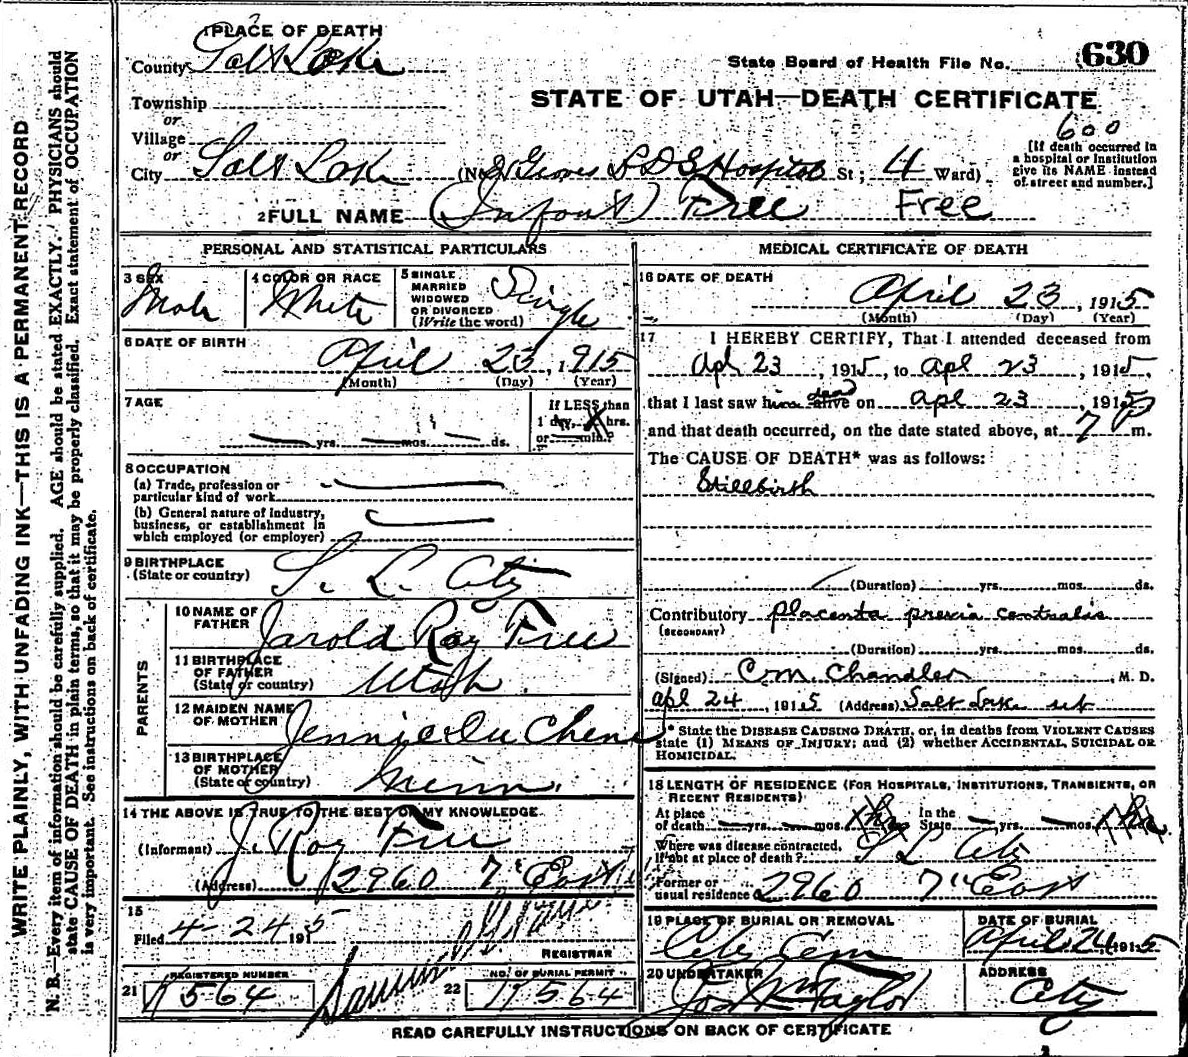 WRITE PLAINLY, WITH UNFADING INK—THIS IS A PERMANENT RECORD
N. B.—Every item of information should be carefully supplied. AGE should be stated EXACTLY. PHYSICIANS should
state CAUSE OF DEATH in plain terms, so that it may be properly classified. Exact statement of OCCUPATION
is very important. See instructions on back of certificate.
1 PLACE OF DEATH
County Salt Lake
State Board of Health File No. 630
STATE OF UTAH—DEATH CERTIFICATE
Township
or
Village
or
600
City Salt Lake (No. Groves L D S Hospital St; 4 Ward)
[If death occurred in
a hospital or institution
give its NAME instead
of street and number.]
2 FULL NAME (Infant) Free Free
PERSONAL AND STATISTICAL PARTICULARS
3 SEX Male
4 COLOR OR RACE White
5 SINGLE
MARRIED
WIDOWED
OR DIVORCED
(Write the word) Single
6 DATE OF BIRTH
April 23, 1915
(Month) (Day) (Year)
7 AGE
yrs. mos. ds.
If LESS than
1 day, hrs.
or min.?
8 OCCUPATION
(a) Trade, profession or
particular kind of work
(b) General nature of industry,
business, or establishment in
which employed (or employer)
9 BIRTHPLACE
(State or country) S. L. City
PARENTS
10 NAME OF
FATHER Jarold Roy Free
11 BIRTHPLACE
OF FATHER
(State or country) Utah.
12 MAIDEN NAME
OF MOTHER Jennie Du Chene
13 BIRTHPLACE
OF MOTHER
(State or country) Minn.
14 THE ABOVE IS TRUE TO THE BEST OF MY KNOWLEDGE
(Informant) J. Roy Free
(Address) 2960 7th East
15
Filed 4-24 1915
REGISTRAR
REGISTERED NUMBER
21
NO. OF BURIAL PERMIT
22
MEDICAL CERTIFICATE OF DEATH
16 DATE OF DEATH
April 23, 1915
(Month) (Day) (Year)
17 I HEREBY CERTIFY, That I attended deceased from
Apl 23, 1915, to Apl 23, 1915,
that I last saw him alive dead on Apl 23, 1915
and that death occurred, on the date stated above, at 7 P m.
The CAUSE OF DEATH* was as follows:
Stillbirth
(Duration) yrs. mos. ds.
Contributory placenta previa centralis
(SECONDARY)
(Duration) yrs. mos. ds.
(Signed) C. M. Chandler, M. D.
Apl 24, 1915 (Address) Salt Lake Ut
* State the DISEASE CAUSING DEATH, or, in deaths from VIOLENT CAUSES
state (1) MEANS OF INJURY; and (2) whether ACCIDENTAL, SUICIDAL OR
HOMICIDAL.
18 LENGTH OF RESIDENCE (FOR HOSPITALS, INSTITUTIONS, TRANSIENTS, OR
RECENT RESIDENTS)
At place
of death yrs. mos. In the
State yrs. mos.
Where was disease contracted,
if not at place of death? S L City
Former or
usual residence 2960 7th East
19 PLACE OF BURIAL OR REMOVAL
City Cem
DATE OF BURIAL
April 24, 1915
20 UNDERTAKER
Jos Wm Taylor
ADDRESS
City
READ CAREFULLY INSTRUCTIONS ON BACK OF CERTIFICATE